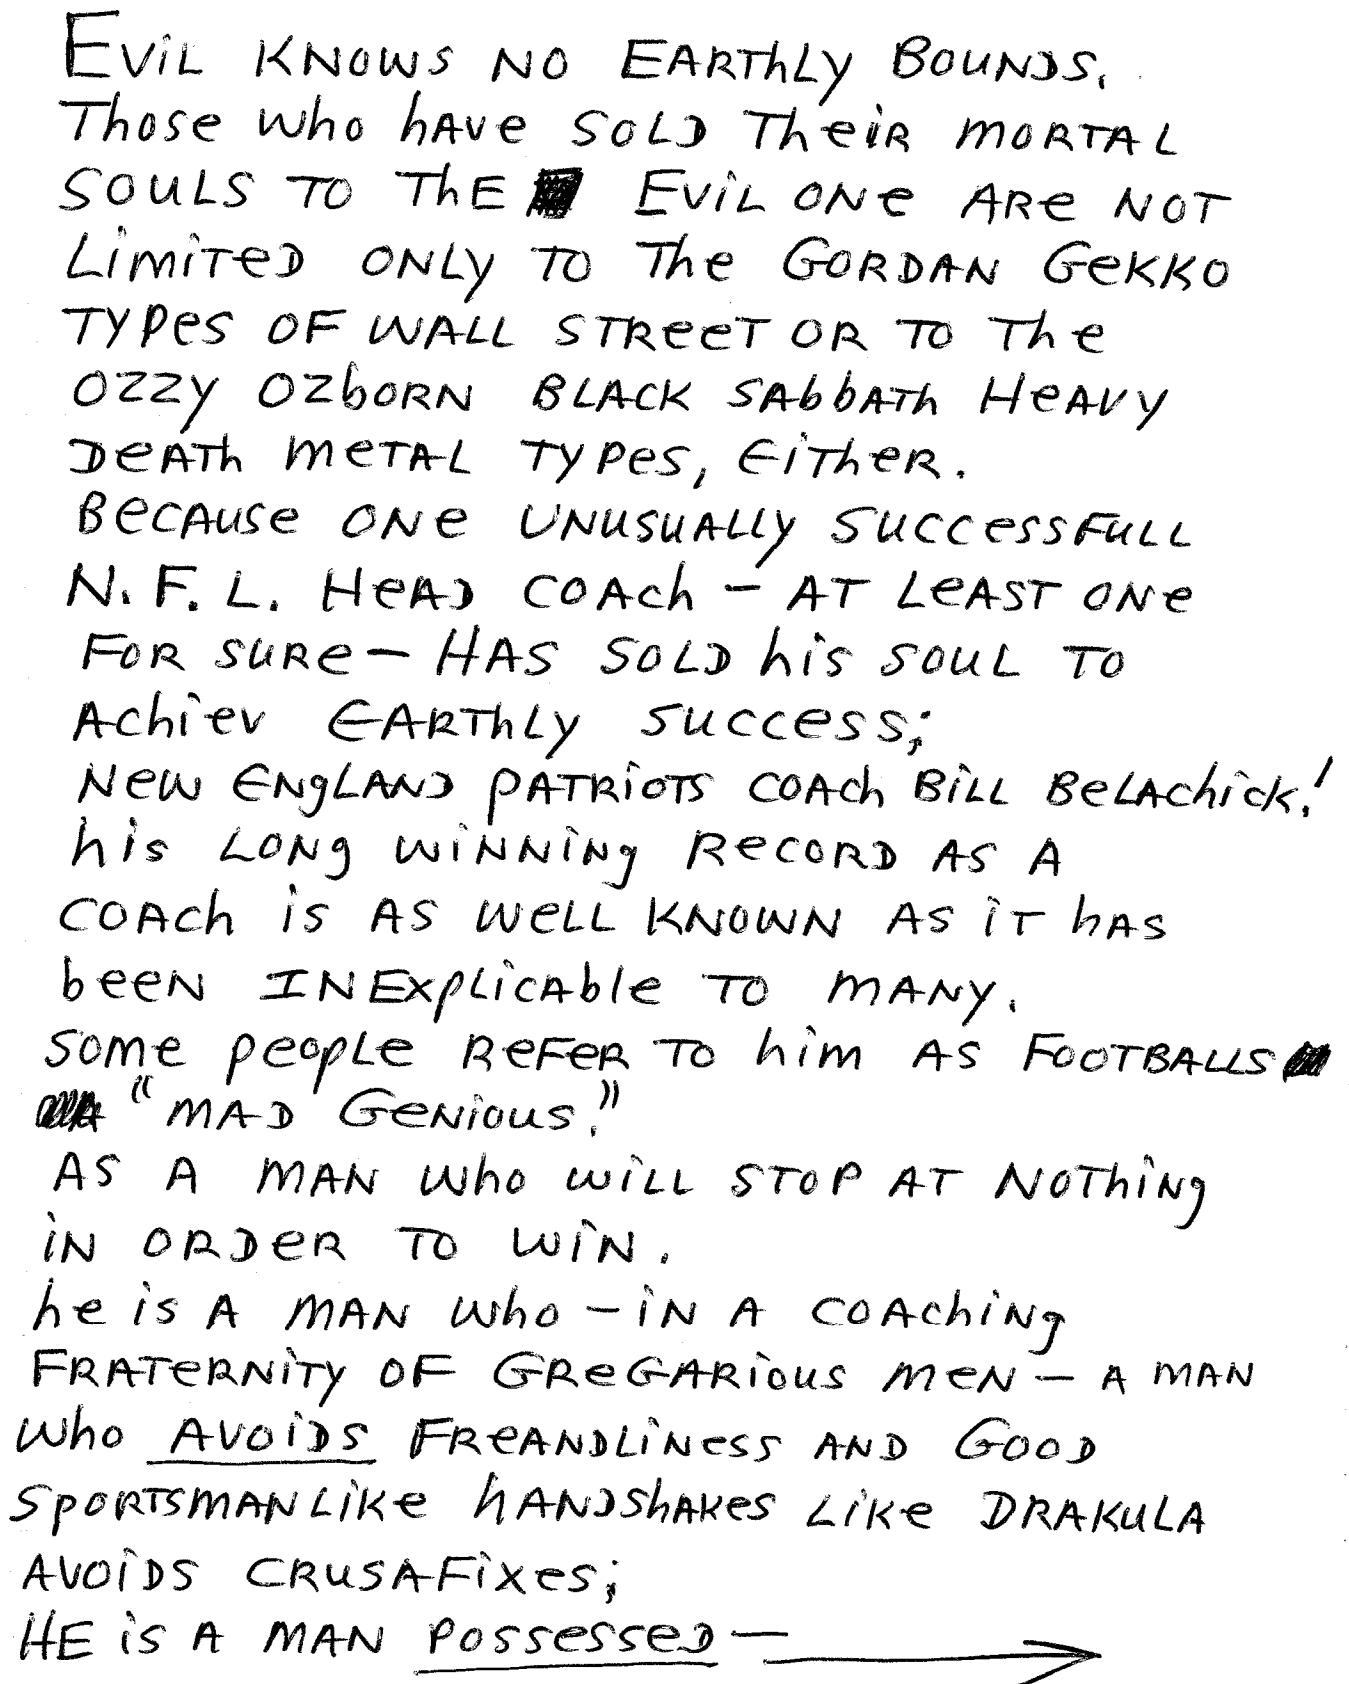 Evil knows no Earthly Bounds.
Those who have sold their mortal
souls to the Evil one are not
Limited only to the Gordan Gekko
types of Wall Street or to the
Ozzy Ozborn Black Sabbath Heavy
Death metal types, Either.
Because one unusually successfull
N.F.L. Head Coach – at least one
for sure – Has sold his soul to
Achiev Earthly success;
New England Patriots Coach Bill Belachick!
his long winning record as a
coach is as well known as it has
been INExplicable to many.
Some people refer to him as Footballs
"mad Genious."
As a man who will stop at nothing
in order to win.
he is a man who – in a coaching
Fraternity of Gregarious men – a man
who Avoids Freandliness and Good
Sportsmanlike handshakes like Drakula
avoids crusafixes;
HE is a man possessed — →